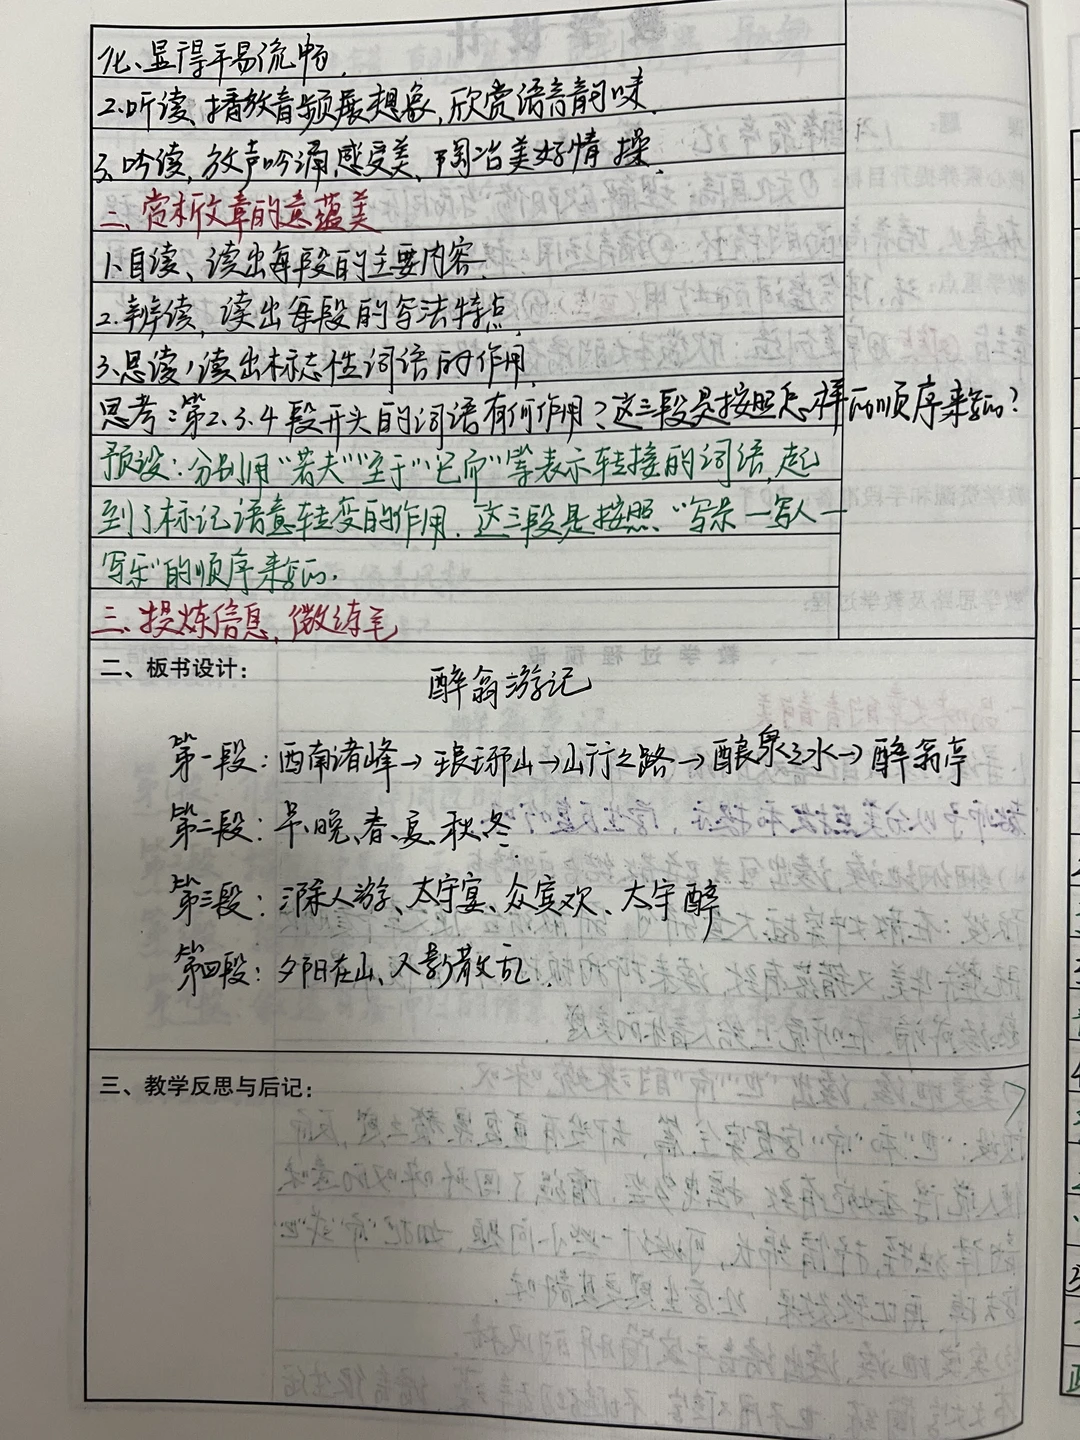 化、显得平易流畅.
2.听读、播放音频展想象,欣赏语言韵味.
3.吟读,放声吟诵感受美、陶冶美好情操.
二、赏析文章的意蕴美
1.自读、读出每段的主要内容.
2.辨读,读出每段的写法特点.
3.思读,读出标志性词语的作用.
思考:第2.3.4段开头的词语有何作用?这三段是按照怎样的顺序来写的?
预设:分别用“若夫”“至于”“已而”等表示转接的词语,起
到了标记语意转变的作用.这三段是按照“写景—写人—
写乐”的顺序来写的.
三、提炼信息,微练笔
二、板书设计:
醉翁游记
第一段:西南诸峰→琅琊山→山行之路→酿泉之水→醉翁亭
第二段:早、晚、春、夏、秋、冬
第三段:滁人游、太守宴、众宾欢、太守醉
第四段:夕阳在山、人影散乱.
三、教学反思与后记: